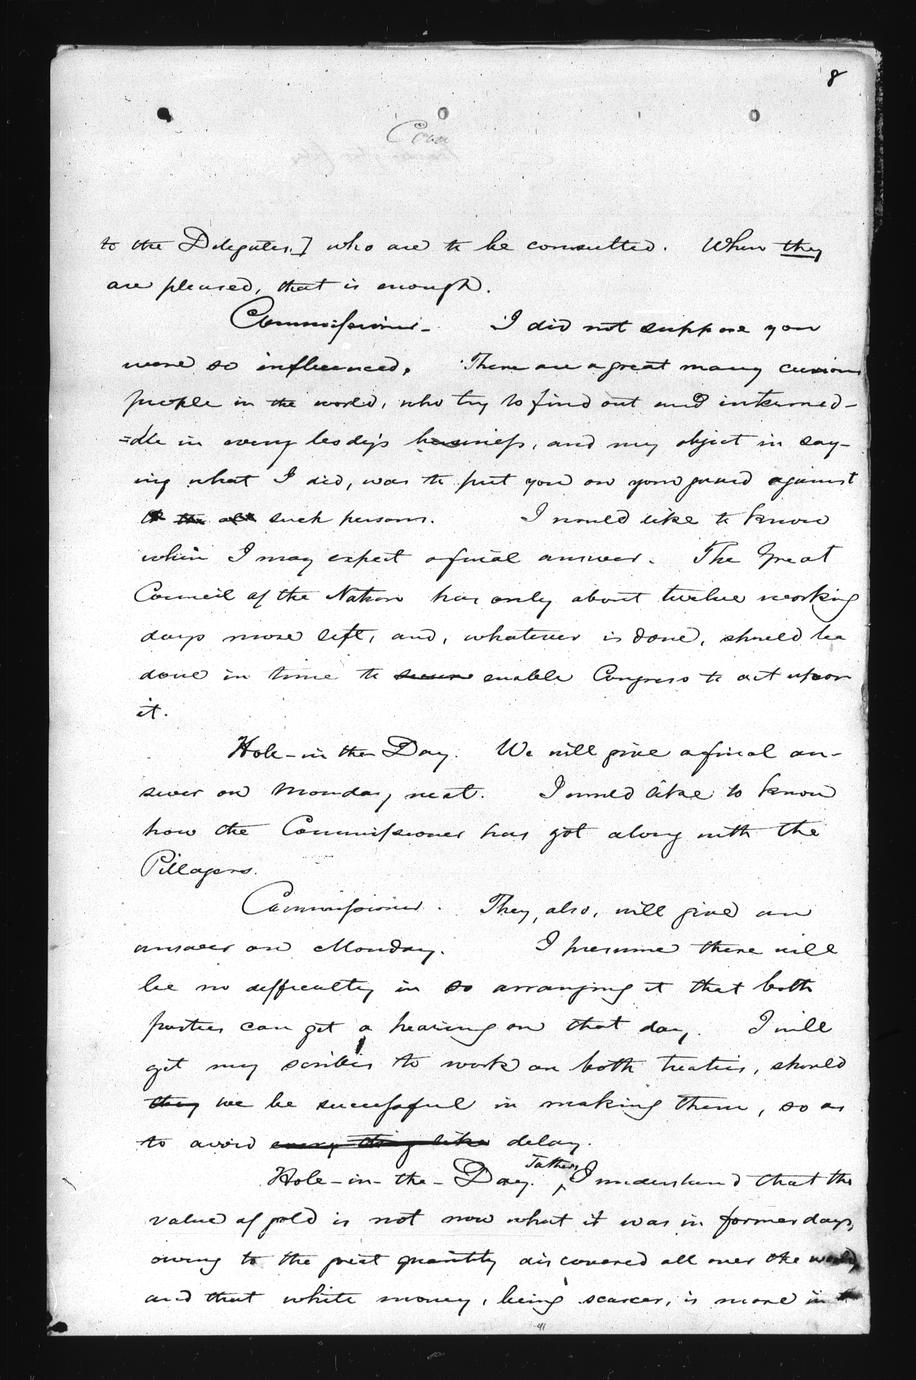 8
to the Delegates,] who are to be consulted. When they
are pleased, that is enough.
Commissioner - I did not suppose you
were so influenced. There are a great many curious
people in the world, who try to find out and intermed-
=dle in every body's business, and my object in say-
ing what I did, was to put you on your guard against
such persons. I would like to know
when I may expect a final answer. The Great
Council of the Nation has only about twelve working
days more left, and, whatever is done, should be
done in time to secure enable Congress to act upon
it.
Hole-in the Day. We will give a final an-
swer on Monday next. I would like to know
how the Commissioner has got along with the
Pillagers.
Commissioner. They, also, will give an
answer on Monday. I presume there will
be no difficulty in so arranging it that both
parties can get a hearing on that day. I will
get my scribes to work on both treaties, should
they we be successful in making them, so as
to avoid every thing like delay.
Hole-in-the-Day. Father, I understand that the
value of gold is not now what it was in former days,
owing to the great quantity discovered all over the world,
and that white money, being scarcer, is more in